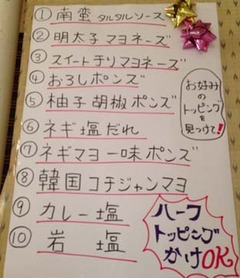 ① 南蛮タルタルソース
② 明太子マヨネーズ
③ スイートチリマヨネーズ
④ おろしポンズ
⑤ 柚子胡椒ポンズ
⑥ ネギ塩だれ
⑦ ネギマヨ一味ポンズ
⑧ 韓国コチジャンマヨ
⑨ カレー塩
⑩ 岩塩
お好み
の
トッピング
を
見つけて!
ハーフ
トッピング
かけOK